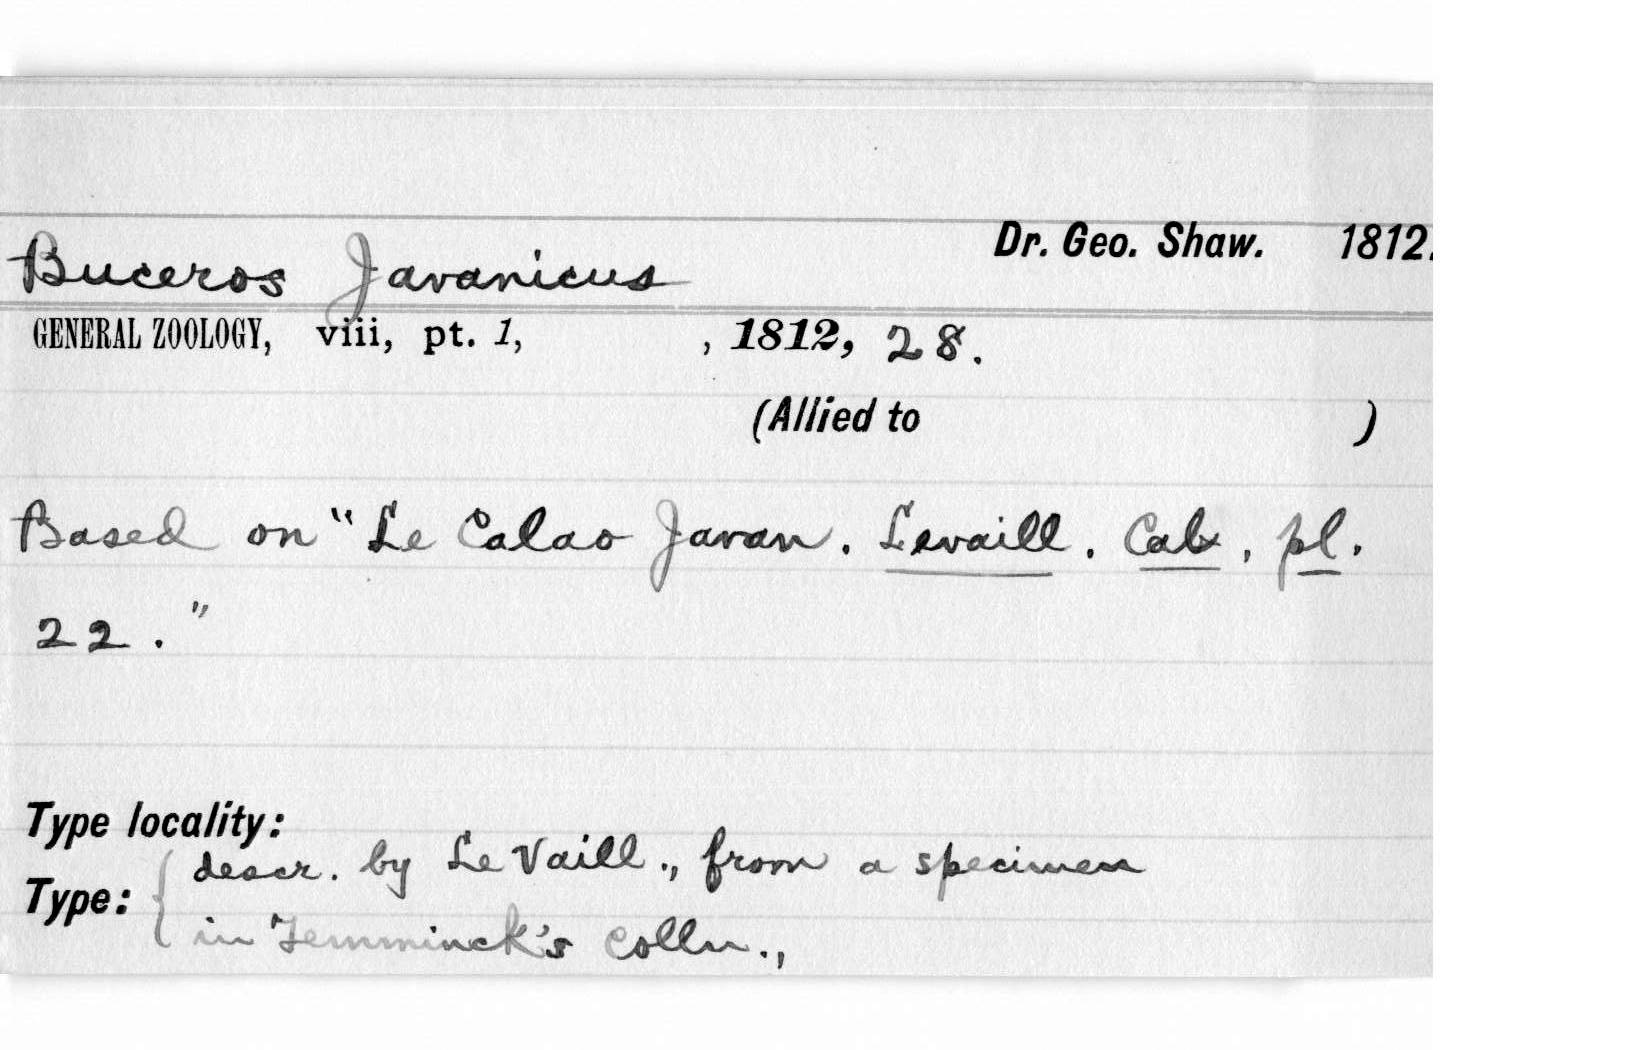 Dr. Geo. Shaw. 1812.
Buceros Javanicus
GENERAL ZOOLOGY, viii, pt. 1, , 1812, 28.
(Allied to )
Based on "Le Calao Javan. Levaill. Cal, pl.
22."
Type locality:
Type: { descr. by Le Vaill., from a specimen
in Temminck's colln.,